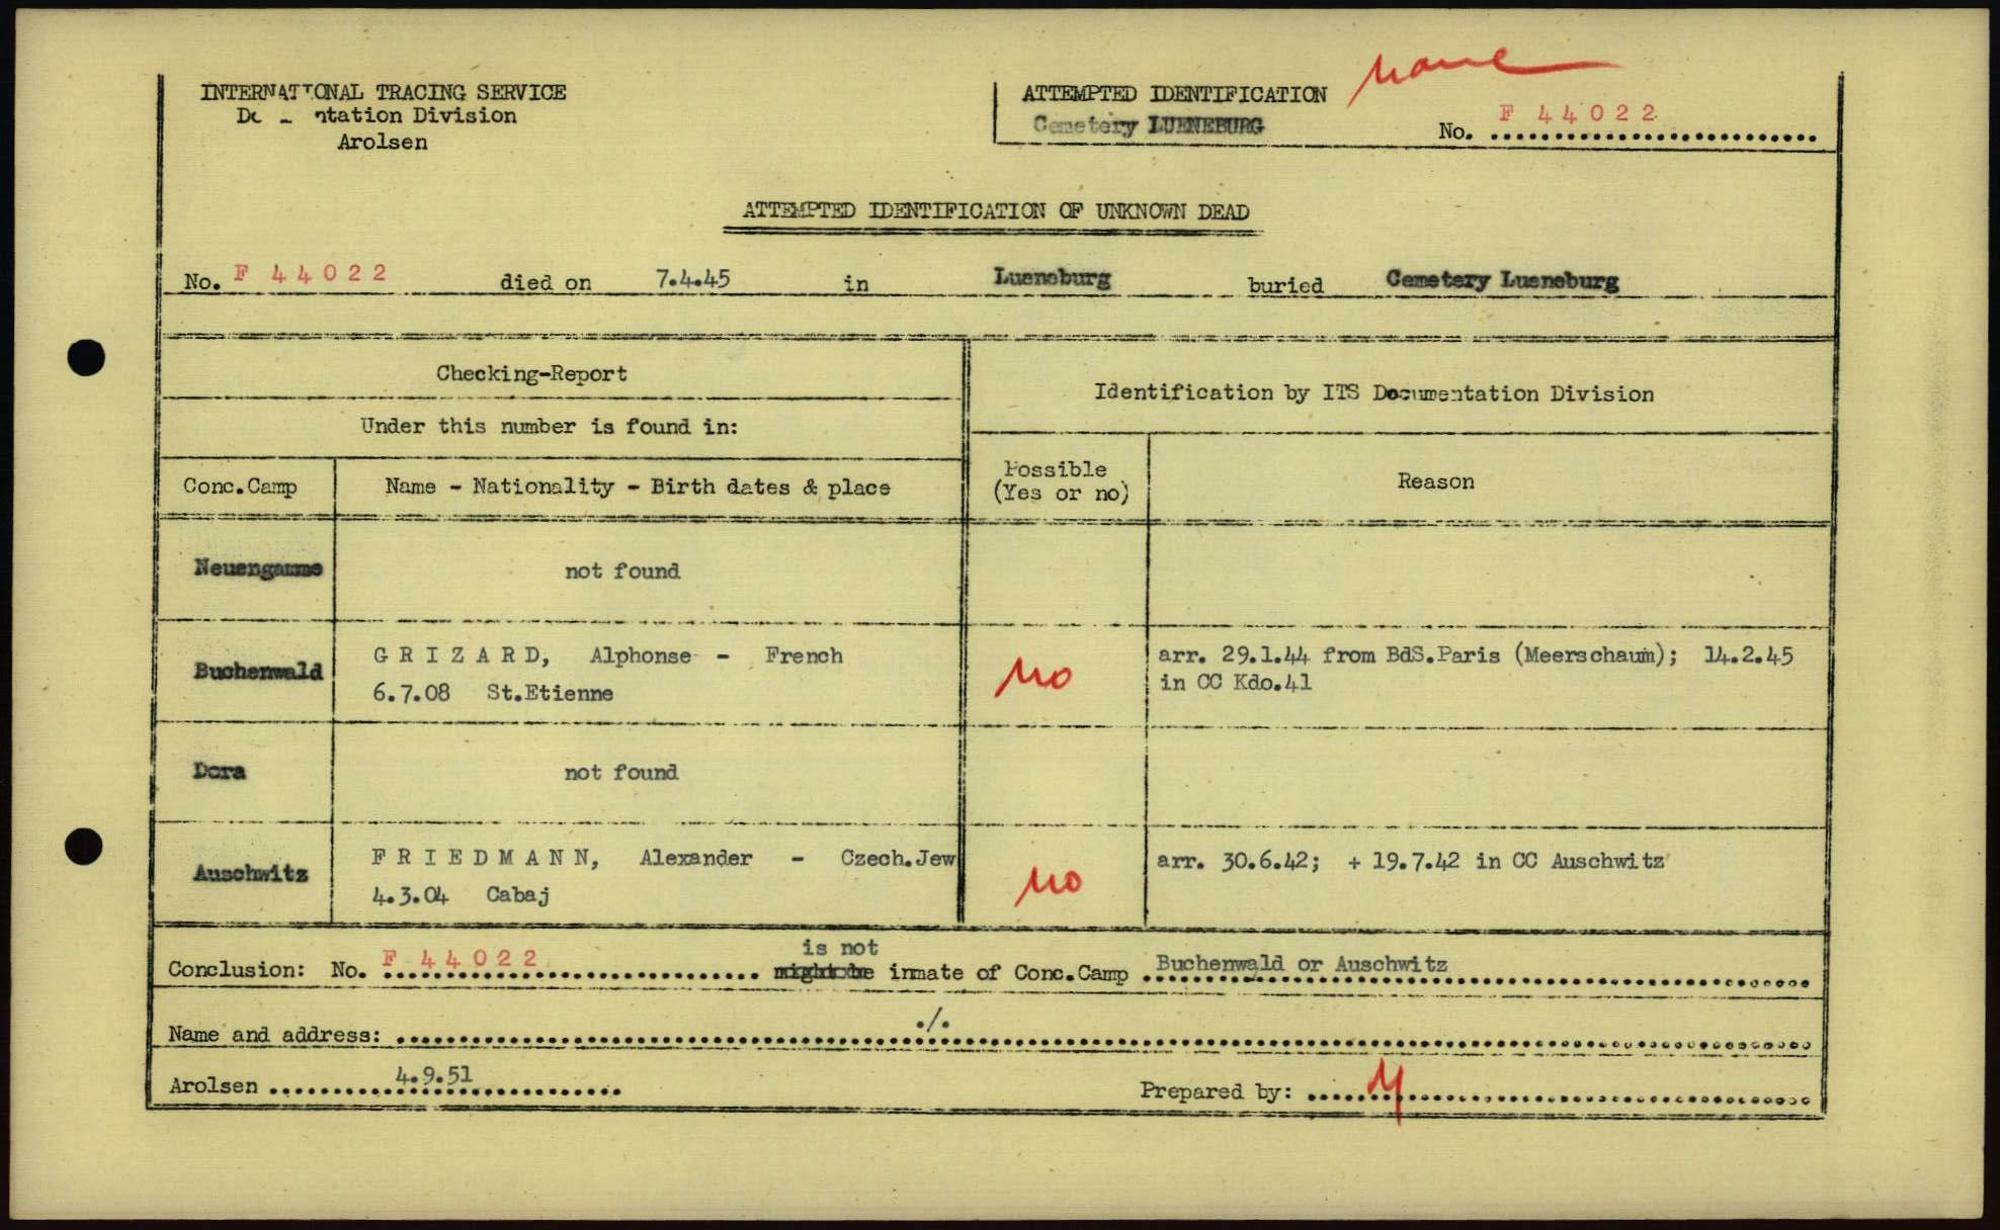 none
INTERNATIONAL TRACING SERVICE
ATTEMPTED IDENTIFICATION
F 44022
ntation Division
Cemetery LUENEBURG
No.
Arolsen
ATTEMPTED IDENTIFICATION OF UNKNOWN DEAD
No. F 44022 died on 7.4.45 in Lueneburg buried Cemetery Lueneburg
Checking-Report
Identification by ITS Documentation Division
Under this number is found in:
Conc.Camp
Name - Nationality - Birth dates & place
Possible
(Yes or no)
Reason
Neuengamme
not found
Buchenwald
G R I Z A R D, Alphonse - French
6.7.08 St.Etienne
no
arr. 29.1.44 from BdS.Paris (Meerschaum); 14.2.45
in CC Kdo.41
Dora
not found
Auschwitz
F R I E D M A N N, Alexander - Czech.Jew
4.3.04 Cabaj
no
arr. 30.6.42; + 19.7.42 in CC Auschwitz
is not
Conclusion: No. F 44022 might be inmate of Conc.Camp Buchenwald or Auschwitz
Name and address: ./.
Arolsen 4.9.51
Prepared by: